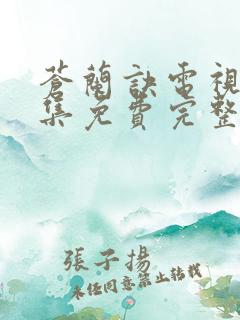 蒼蘭訣電視
集免費完整
張子揚
未經同意禁止轉載